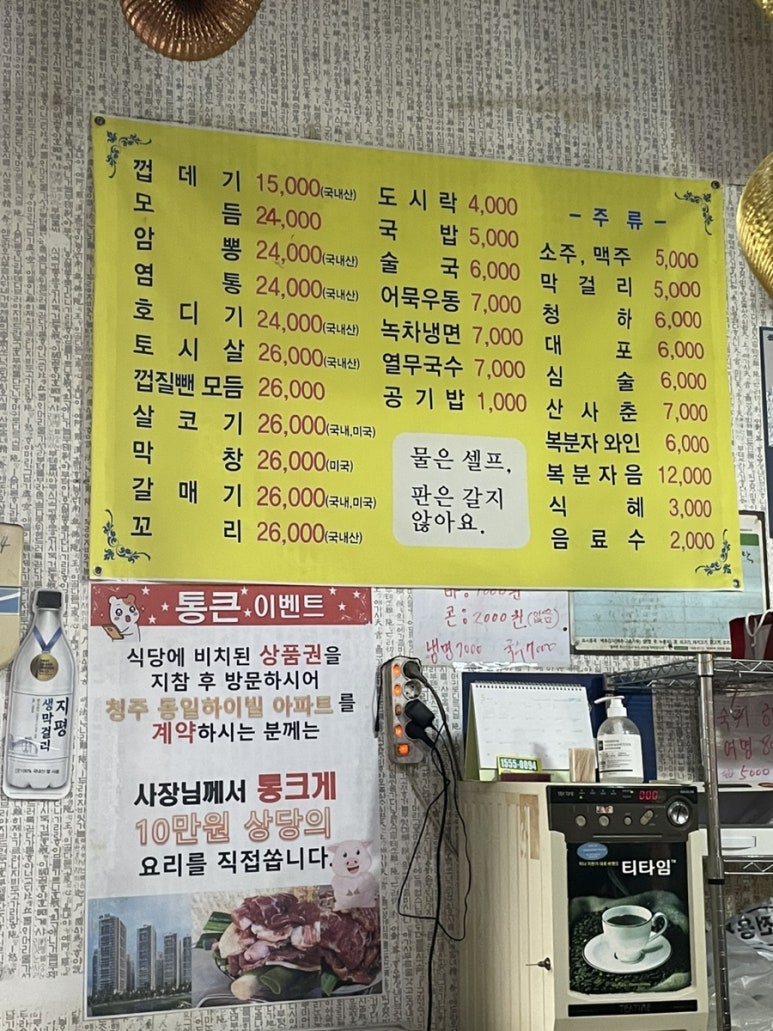 껍데기 15,000(국내산)
모듬 24,000
암뽕 24,000(국내산)
염통 24,000(국내산)
호디기 24,000(국내산)
토시살 26,000(국내산)
껍질뺀 모듬 26,000
살코기 26,000(국내,미국)
막창 26,000(미국)
갈매기 26,000(국내,미국)
꼬리 26,000(국내산)
도시락 4,000
국밥 5,000
술국 6,000
어묵우동 7,000
녹차냉면 7,000
열무국수 7,000
공기밥 1,000
물은 셀프,
판은 갈지
않아요.
- 주류 -
소주, 맥주 5,000
막걸리 5,000
청하 6,000
대포 6,000
심술 6,000
산사춘 7,000
복분자 와인 6,000
복분자음 12,000
식혜 3,000
음료수 2,000
통큰 이벤트
식당에 비치된 상품권을
지참 후 방문하시어
청주 동일하이빌 아파트를
계약하시는 분께는
사장님께서 통크게
10만원 상당의
요리를 직접쏩니다.
지평
생막걸리
콘:2000원(없음)
냉면 7000
1555-0094
000
티타임